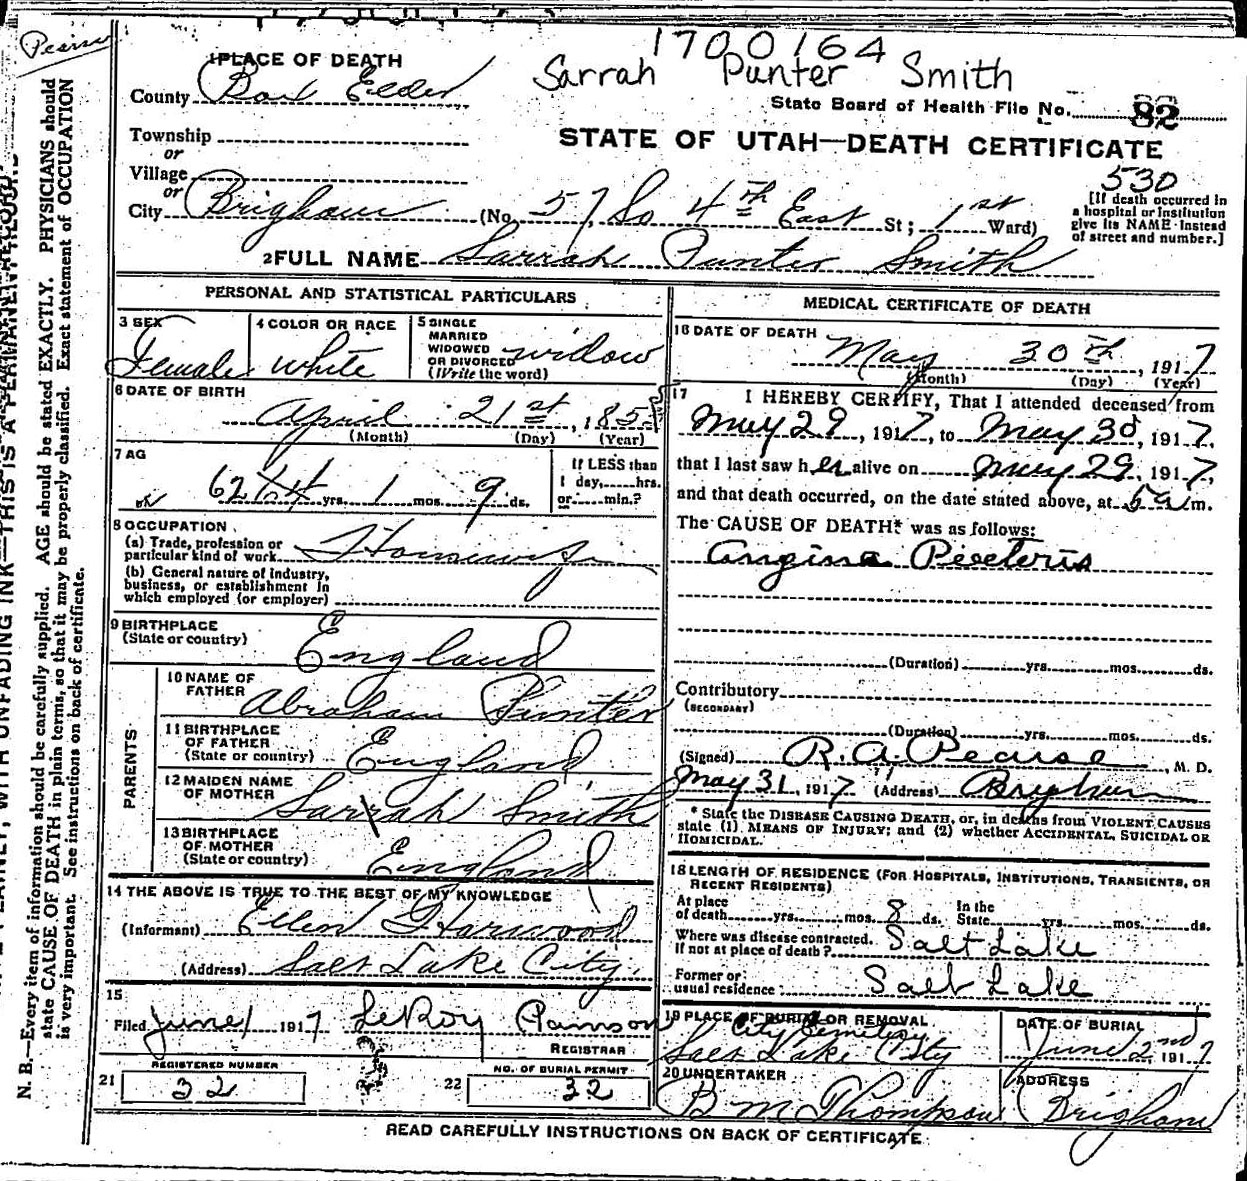 Pearse
1700164
1 PLACE OF DEATH
Sarrah Punter Smith
County Box Elder
State Board of Health File No. 82
Township
or
STATE OF UTAH—DEATH CERTIFICATE
Village
or
530
City Brigham (No. 57 So 4th East St; 1st Ward)
[If death occurred in a hospital or institution give its NAME instead of street and number.]
2 FULL NAME Sarrah Punter Smith
PERSONAL AND STATISTICAL PARTICULARS
3 SEX
Female
4 COLOR OR RACE
White
5 SINGLE MARRIED WIDOWED OR DIVORCED (Write the word)
widow
6 DATE OF BIRTH
April 21st, 185
(Month) (Day) (Year)
7 AG
62 yrs. 1 mos. 9 ds.
If LESS than 1 day, hrs. or min.?
8 OCCUPATION
(a) Trade, profession or particular kind of work Housewife
(b) General nature of industry, business, or establishment in which employed (or employer)
9 BIRTHPLACE (State or country) England
PARENTS
10 NAME OF FATHER Abraham Punter
11 BIRTHPLACE OF FATHER (State or country) England
12 MAIDEN NAME OF MOTHER Sarrah Smith
13 BIRTHPLACE OF MOTHER (State or country) England
14 THE ABOVE IS TRUE TO THE BEST OF MY KNOWLEDGE
(Informant) Ellen Harwood
(Address) Salt Lake City.
15
Filed June 1 1917 LeRoy
REGISTRAR
REGISTERED NUMBER
21 32
NO. OF BURIAL PERMIT
22 32
MEDICAL CERTIFICATE OF DEATH
16 DATE OF DEATH
May 30th, 1917
(Month) (Day) (Year)
17 I HEREBY CERTIFY, That I attended deceased from
May 29, 1917, to May 30, 1917,
that I last saw her alive on May 29, 1917,
and that death occurred, on the date stated above, at 5 a m.
The CAUSE OF DEATH* was as follows:
Angina Pectoris
(Duration) yrs. mos. ds.
Contributory
(SECONDARY)
(Duration) yrs. mos. ds.
(Signed) R. A. Pearse, M. D.
May 31, 1917 (Address) Brigham
* State the DISEASE CAUSING DEATH, or, in deaths from VIOLENT CAUSES
state (1) MEANS OF INJURY; and (2) whether ACCIDENTAL, SUICIDAL OR
HOMICIDAL.
18 LENGTH OF RESIDENCE (FOR HOSPITALS, INSTITUTIONS, TRANSIENTS, OR
RECENT RESIDENTS)
At place of death yrs. mos. 8 ds. In the State yrs. mos. ds.
Where was disease contracted. If not at place of death? Salt Lake
Former or usual residence Salt Lake
19 PLACE OF BURIAL OR REMOVAL
City Cemetery
Salt Lake City
DATE OF BURIAL
June 2nd 1917
20 UNDERTAKER
B M Thompson
ADDRESS
Brigham
READ CAREFULLY INSTRUCTIONS ON BACK OF CERTIFICATE
N. B.—Every item of information should be carefully supplied. AGE should be stated EXACTLY. PHYSICIANS should
state CAUSE OF DEATH in plain terms, so that it may be properly classified. Exact statement of OCCUPATION
is very important. See instructions on back of certificate.
PLAINLY, WITH UNFADING INK—THIS IS A PERMANENT RECORD